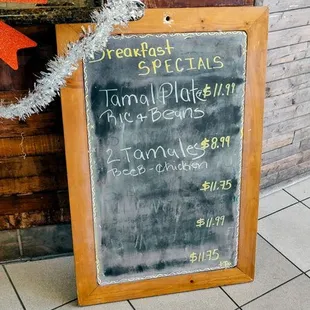 Breakfast
SPECIALS
Tamal Plate $11.99
Ric & Beans
2 Tamales $8.99
Beeb - Chicken
$11.75
$11.99
$11.75